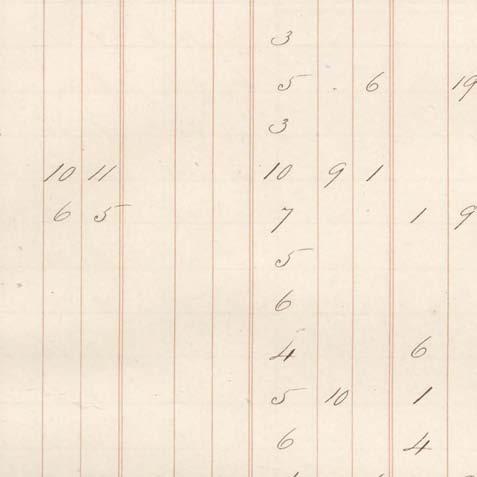 3
5 6 19
3
10 11 10 9 1
6 5 7 1 9
5
6
4 6
5 10 1
6 4